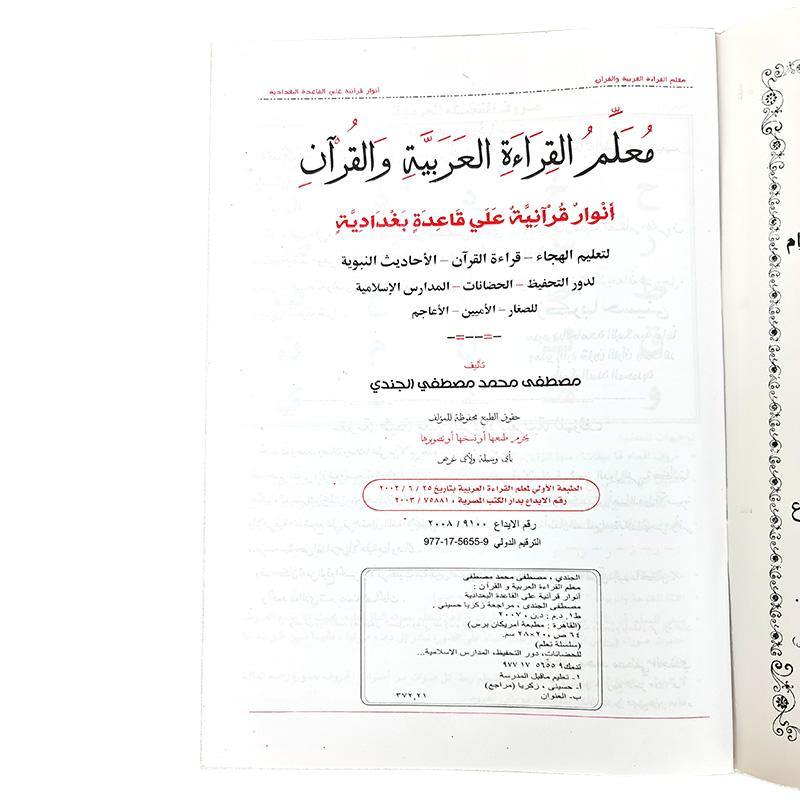 معلم القراءة العربية والقرآن
أنوار قرآنية على القاعدة البغدادية
مُعَلِّمُ القِرَاءَةِ العَرَبِيَّةِ وَالقُرْآنِ
أنْوَارٌ قُرْآنِيَّةٌ عَلَي قَاعِدَةٍ بَغْدَادِيَّةٍ
لتعليم الهجاء – قراءة القرآن – الأحاديث النبوية
لدور التحفيظ – الحضانات – المدارس الإسلامية
للصغار – الأميين – الأعاجم
تأليف
مصطفى محمد مصطفي الجندي
حقوق الطبع محفوظة للمؤلف
يحرم طبعها أو نسخها أو تصويرها
بأى وسيلة ولأى غرض
الطبعة الأولي لمعلم القراءة العربية بتاريخ ٢٥ / ٦ / ٢٠٠٢
رقم الايداع بدار الكتب المصرية ، ٧٥٨٨١ / ٢٠٠٣
رقم الايداع ٩١٠٠ / ٢٠٠٨
الترقيم الدولي 9-5655-17-977
الجندي ، مصطفى محمد مصطفى
معلم القراءة العربية و القرآن :
أنوار قرآنية على القاعدة البغدادية
مصطفى الجندى ، مراجعة زكريا حسيني .
ط١. د.م : د.ن ، ٢٠٠٧ .
(القاهرة : مطبعة أمريكان برس)
٦٤ ص ، ٢٠×٢٨ سم.
(سلسلة تعلم)
للحضانات، دور التحفيظ، المدارس الاسلامية...
تدمك ٩ ٥٦٥٥ ١٧ ٩٧٧
١- تعليم ماقبل المدرسة
أ- حسيني ، زكريا (مراجع)
ب- العنوان
٣٧٢,٢١